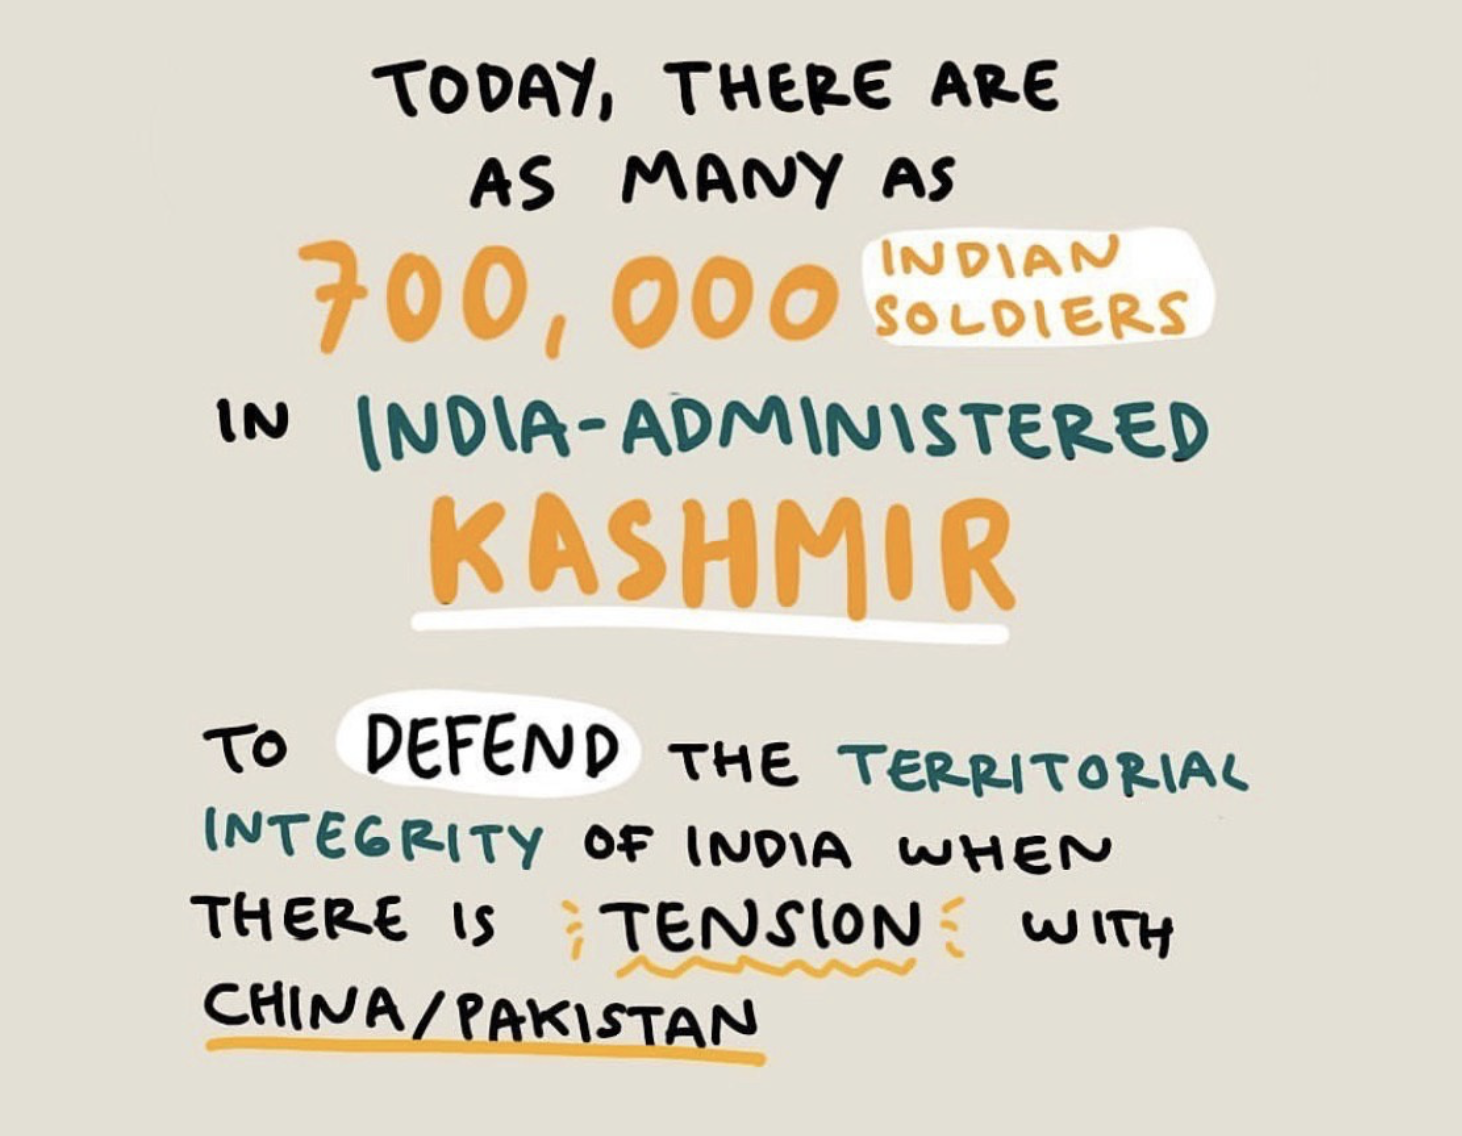 TODAY, THERE ARE
AS MANY AS
700,000 INDIAN
SOLDIERS
IN INDIA-ADMINISTERED
KASHMIR
TO DEFEND THE TERRITORIAL
INTEGRITY OF INDIA WHEN
THERE IS TENSION WITH
CHINA/PAKISTAN